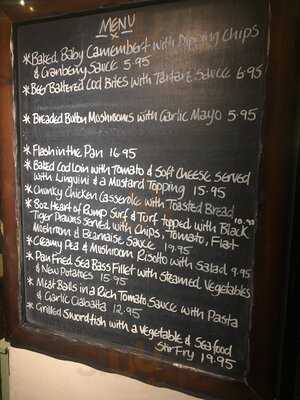 MENU
* Baked Baby Camembert with Dipping Chips
& Cranberry Sauce 5.95
* Beer Battered Cod Bites with Tartare Sauce 6.95
* Breaded Button Mushrooms with Garlic Mayo 5.95
* Flash in the Pan 16.95
* Baked Cod Loin with Tomato & Soft Cheese served
with Linguini & a Mustard Topping 15.95
* Chunky Chicken Casserole with Toasted Bread
10.95
* 8oz Heart of Rump Surf & Turf topped with Black
Tiger Prawns served with Chips, Tomato, Flat
Mushroom & Bearnaise Sauce 19.95
* Creamy Pea & Mushroom Risotto with Salad 9.95
* Pan Fried Sea Bass Fillet with Steamed Vegetables
& New Potatoes 15.95
* Meat Balls in a Rich Tomato Sauce with Pasta
& Garlic Ciabatta 12.95
* Grilled Swordfish with a Vegetable & Seafood
Stir Fry 19.95